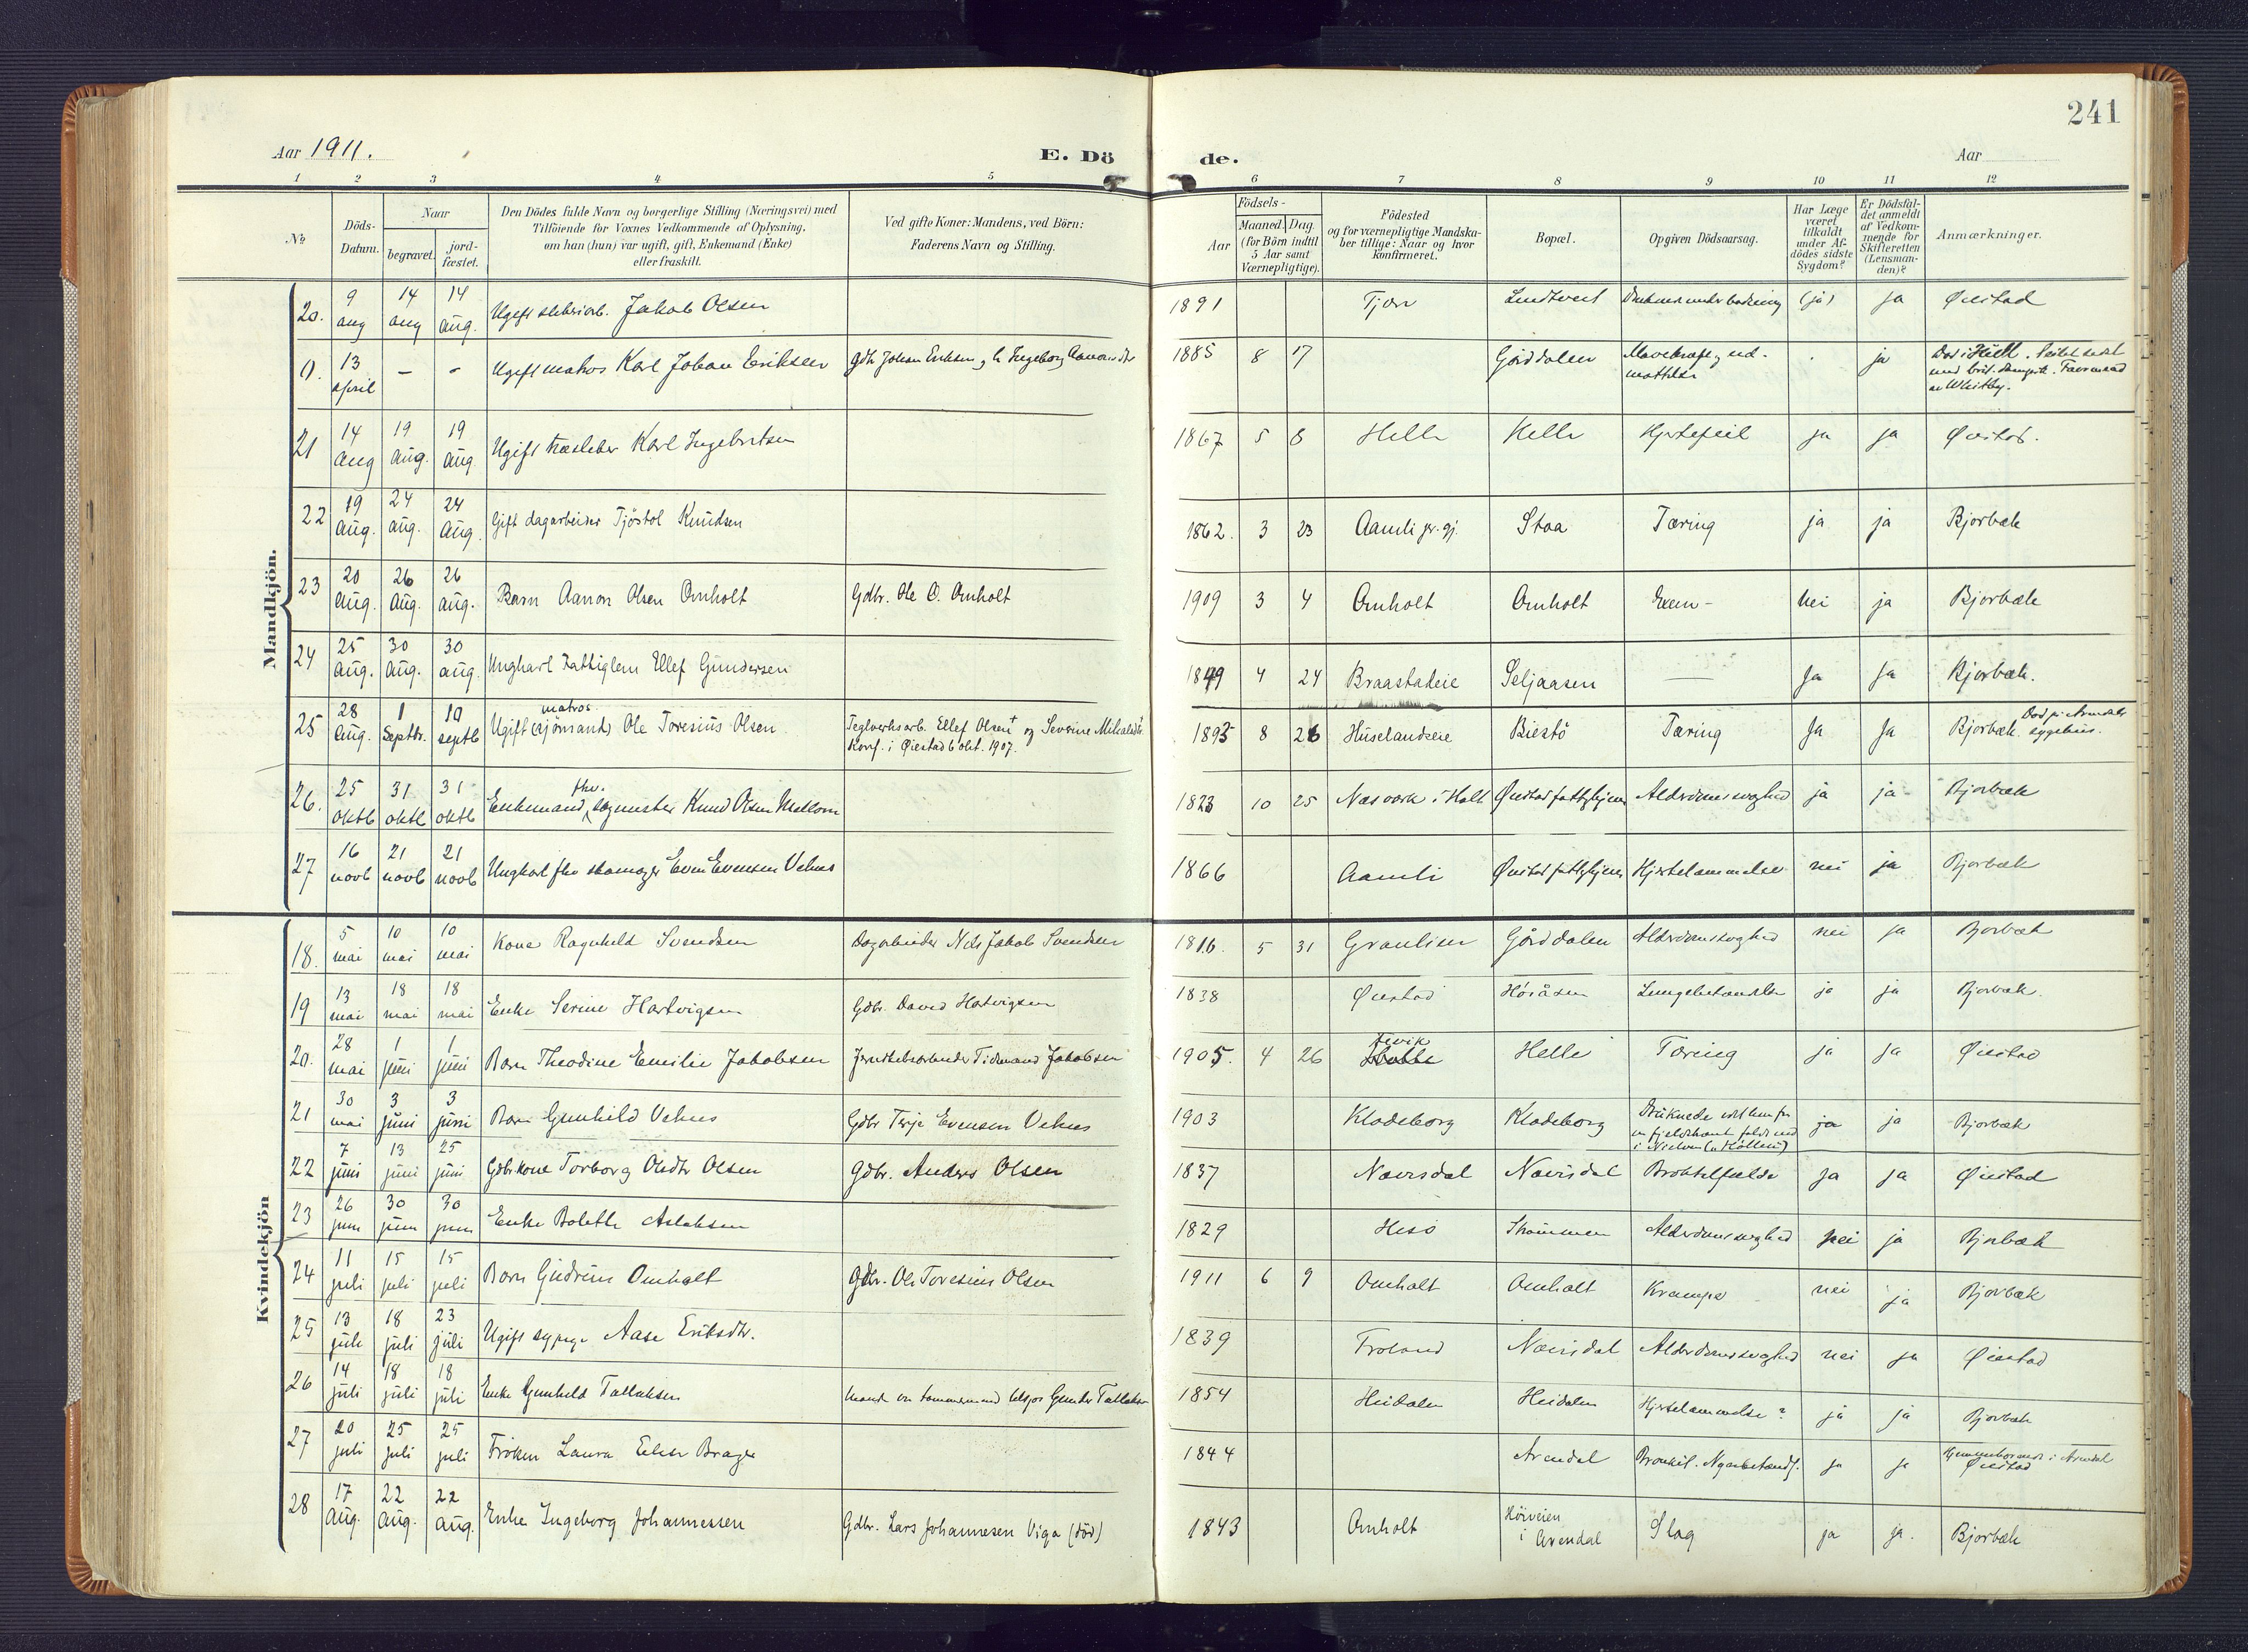 241
Aar 1911.
E. Dö
de.
Aar
1 2 3 4 5 6 7 8 9 10 11 12
№
Döds-
Datum.
Naar
begravet.
jord-
fæstet.
Den Dödes fulde Navn og borgerlige Stilling (Næringsvei) med
Tilföiende for Voxnes Vedkommende af Oplysning,
om han (hun) var ugift, gift, Enkemand (Enke)
eller fraskilt.
Ved gifte Koner: Mandens, ved Börn:
Faderens Navn og Stilling.
Födsels-
Aar
Maaned.
Dag.
(for Börn indtil
5 Aar samt
Værnepligtige).
Födested
og for værnepligtige Mandska-
ber tillige: Naar og hvor
konfirmeret.
Bopæl.
Opgiven Dödsaarsag.
Har Læge
været
tilkaldt
under Af-
dödes sidste
Sygdom?
Er Dödsfal-
det anmeldt
af Vedkom-
mende for
Skifteretten
(Lensman-
den)?
Anmærkninger.
Mandkjön.
20. 9 aug 14 aug 14 aug. Ugift Jakob Olsen 1891 Tjørn (ja) ja Øiestad
0. 13 april – – Ugift matros Karl Johan Eriksen Gdb Johan Eriksen og h. Ingeborg 1885 8 17 Gårddalen . ja Død i Hull.
med Dampsk.
av Whitby.
21 14 aug 19 aug. 19 aug. Ugift Karl Ingebretsen 1867 5 8 Helle Helle Hjertefeil ja ja Øiestad.
22 19 aug. 24 aug. 24 aug. Gift dagarbeider Tjöstol Knudsen 1862. 3 23 Aamli pr. gj. Stoa Tæring ja ja Bjorbæk
23 20 aug. 26 aug. 26 aug. Barn Aanon Olsen Omholt Gdbr. Ole O. Omholt 1909 3 4 Omholt Omholt nei ja Bjorbæk
24 25 aug. 30 aug. 30 aug. Ungkarl Fattiglem Ellef Gundersen 1849 4 24 Braastadeie Seljaasen — Ja Ja Bjorbæk.
25 28 aug. 1 Septbr. 1 septb Ugift (sjömand) matros Ole Toresius Olsen Teglverksarb. Ellef Olsen † og Severine
Konf. i Øiestad 6 okt. 1907. 1893 8 26 Huselandseie Biestö Tæring Ja Ja Bjorbæk. Død på Arendals
sygehus.
26. 25 oktb 31 oktb 31 oktb Enkemand, fhv. Knud Olsen Mellom 1823 10 25 Næs værk i Holt Øiestad fattighjem Alderdomssvaghed ja ja Bjorbæk
27 16 novb 21 novb 21 novb Ungkarl fhv skomager Even Evensen Vehus 1866 Aamli Øiestad fattighjem Hjertelammelse nei ja Bjorbæk
Kvindekjön
18. 5 mai 10 mai 10 mai Kone Ragnhild Svendsen Dagarbeider Nils Jakob Svendsen 1816. 5 31 Granlien Gårddalen Alderdomssvaghed nei ja Bjorbæk
19 13 mai 18 mai 18 mai Enke Serine Hartvigsen Gdbr. David Hartvigsen 1838 Øiestad Höiåsen Lungebetændelse ja ja Bjorbæk.
20. 28 mai 1 juni 1 juni Barn Theodine Emilie Jakobsen Tidemand Jakobsen 1905. 4 26 Fevik Helle Tæring ja ja Øiestad
21 30 mai 3 juni 3 juni Barn Gunhild Vehus Gdbr Terje Evensen Vehus 1903 Klodeborg Klodeborg Druknede ved hun fra
en fjeldskrænt faldt ned
i Nidelven ja ja Bjorbæk
22 7 juni 13 juni 25 juni Gdbr kone Torborg Olsdtr Olsen Gdbr. Anders Olsen 1837 Nævisdal Nævisdal ja ja Øiestad
23 26 juni 30 juni 30 juni Enke Bolette Aslaksen 1829 Hisö Strömmen Alderdomssvaghed nei ja Bjorbæk
24 11 juli 15 juli 15 juli Barn Gudrun Omholt Gdbr. Ole Toresius Olsen 1911 6 9 Omholt Omholt Krampe nei ja Bjorbæk
25 13 juli 18 juli 23 juli Ugift sypige Aase Eriksdtr. 1839 Froland Nævisdal Alderdomssvaghed nei ja Øiestad
26 14 juli 18 juli 18 juli Enke Gunhild Tallaksen Mand en tømmermand Gunder Tallaksen 1854 Heidalen Heidalen Hjertelammelse? ja ja Bjorbæk
27 20 juli 25 juli 25 juli Fröken Laura Brage 1844 Arendal Bronkit. ja ja Hjemmehørende i Arendal
Øiestad
28 17 aug. 22 aug. 22 aug. Enke Ingeborg Johannessen Gdbr. Lars Johannesen Viga (död) 1843 Omholt Höiveien
i Arendal Slag ja ja. Bjorbæk